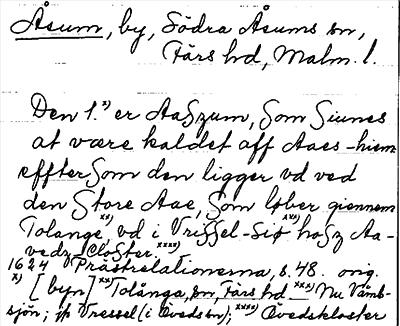 Åsum, by, Södra Åsums sn,
Färs hd, Malm. l.
Den 1.ˣ⁾ er AaSzum, Som Siunes
at være kaldet aff Aaes-hiem
effter Som den ligger vd ved
den Store Aae, Som løber giennem
Tolange,ˣˣ⁾ vd i VriSSel-Siøˣˣˣ⁾ hoSz Aa-
vedz CloSter.ˣˣˣˣ⁾
1624 Prästrelationerna, s. 48. orig.
ˣ⁾ [byn] ˣˣ⁾ Tolånga, sn, Färs hd ˣˣˣ⁾ Nu Vämb-
sjön; jfr Vressel (i Öveds sn); ˣˣˣˣ⁾ Övedskloster